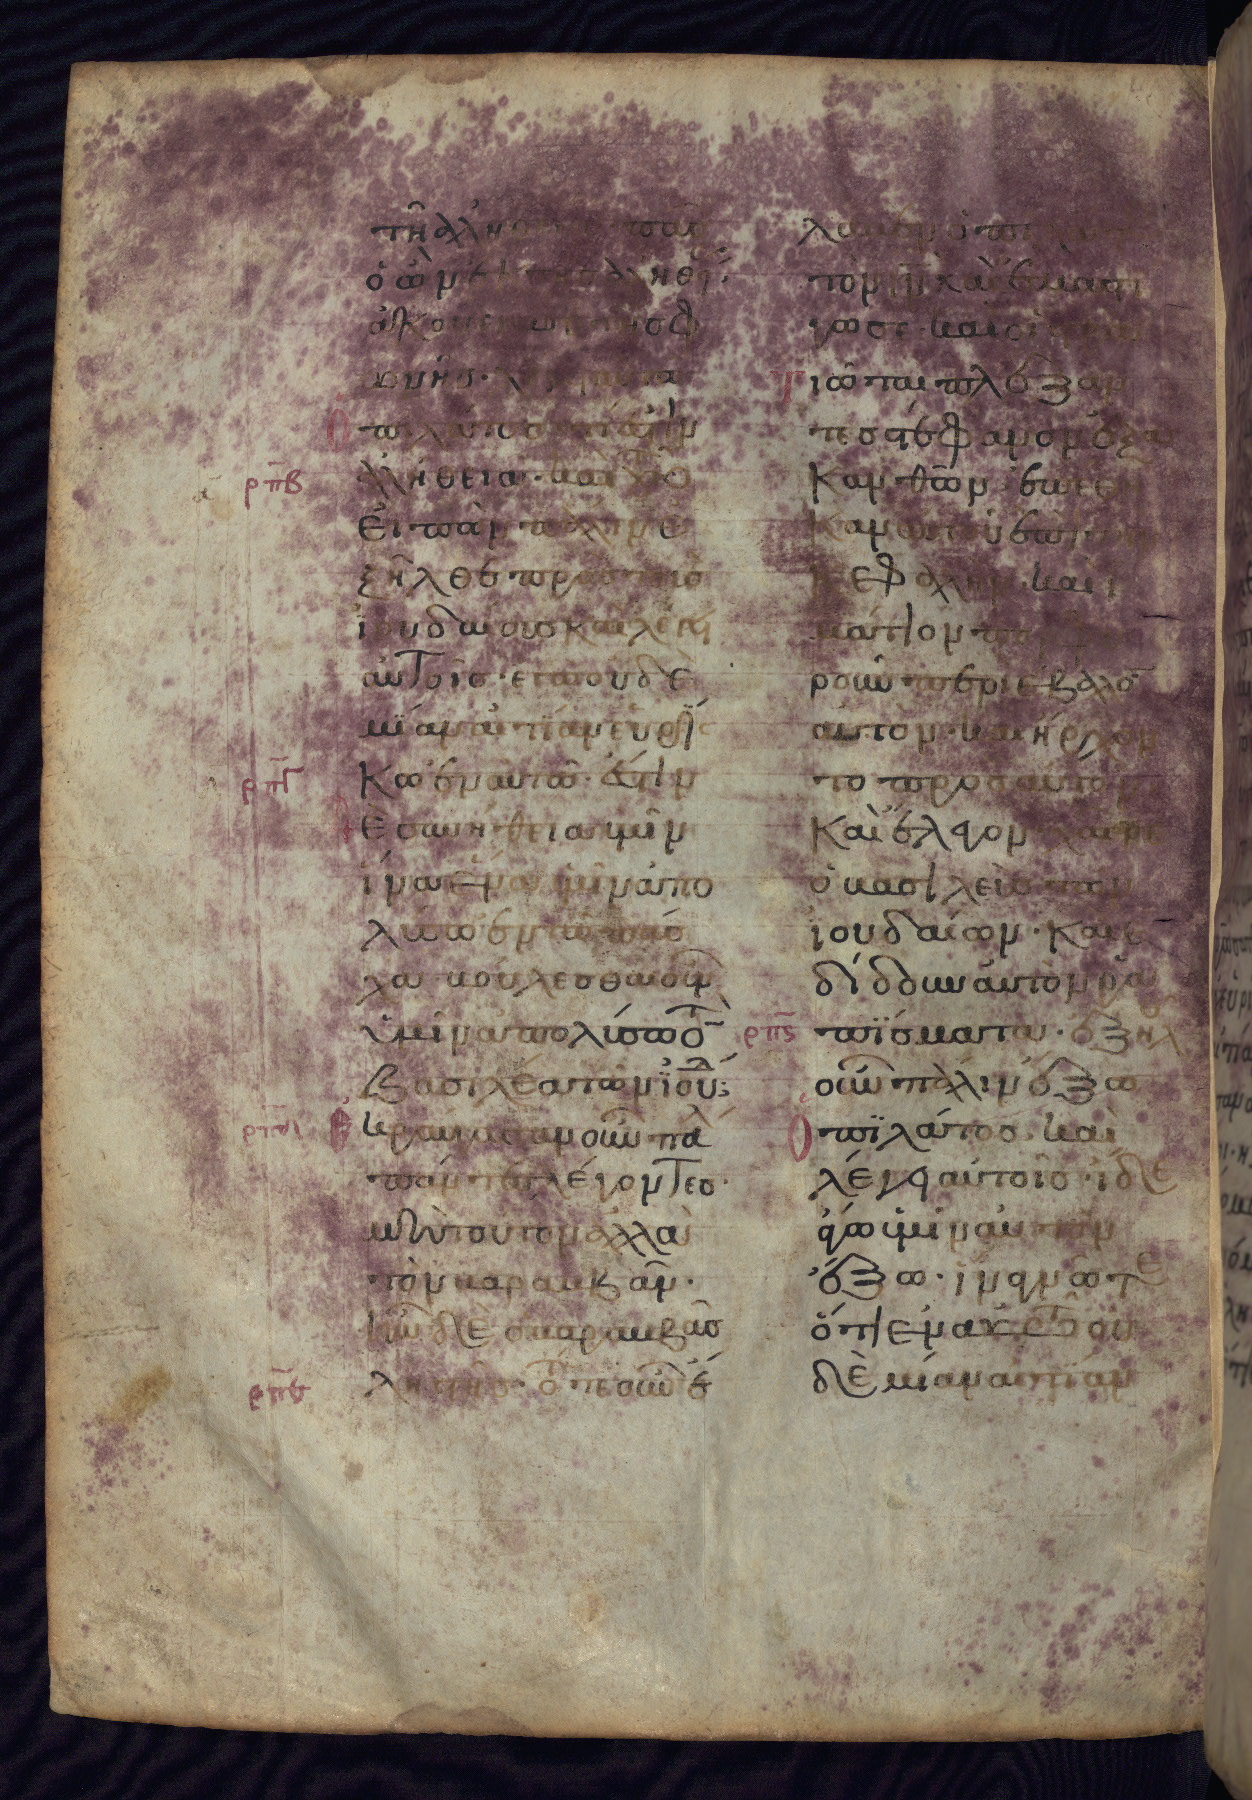 τῆ ἀλη
ὁ ὢν
ἀκούει
ωνῆσ·
πιλάτοσ τί ἐστὶν
ρπβ
ἀλήθεια· καὶ τοῦτο
εἰπὼν πάλιν ἐ
ξῆλθε προσ τοὺσ
ἰουδαίουσ καὶ λέγει
αὐτοῖσ· ἐγὼ οὐδε
μίαν αἰτίαν εὑρί
ρπγ
σκω ἐν αὐτῶ· ἔστιν
δὲ συνήθεια ὑμῖν
ἵνα ἕνα ὑμῖν ἀπο
λύσω ἐν τῶ πάσ
χα βούλεσθε οὖν
ὑμῖν ἀπολύσω τὸν
βασιλέα τῶν ἰουδ;
ρπδ
ἐκραύγασαν οὖν πάλ
πάντεσ λέγοντεσ·
μὴ τοῦτον ἀλλὰ
τὸν βαραββᾶν·
ἦν δὲ ὁ βαραββᾶσ
ρπε
λῃστήσ· τότε οὖν ἔ
λαβεν ὁ πιλα
τὸν ιν καὶ ἐμαστί
γωσε· καὶ οἱ στρα
τιῶται πλέξαν
τεσ στέφανον ἐξ ἀ
κανθῶν ἐπέθη
καν αὐτοῦ ἐπὶ τὴν
κεφαλὴν· καὶ ἱ
μάτιον πορφυ
ροῦν περιέβαλον
αὐτὸν· καὶ ἤρχον
το προσ αὐτὸν
καὶ ἔλεγον χαῖρε
ὁ βασιλεὺσ τῶν
ἰουδαίων· καὶ ἐ
δίδουν αὐτὸν ῥα
ρπς
πίσματα· ἐξῆλ
οὖν πάλιν ἔξω
ὁ πιλάτοσ καὶ
λέγει αὐτοῖσ· ἴδε
ἄγω ὑμῖν αὐτὸν
ἔξω· ἵνα γνῶτε
ὅτι ἐν αὐτῶ οὐ
δεμίαν αἰτίαν